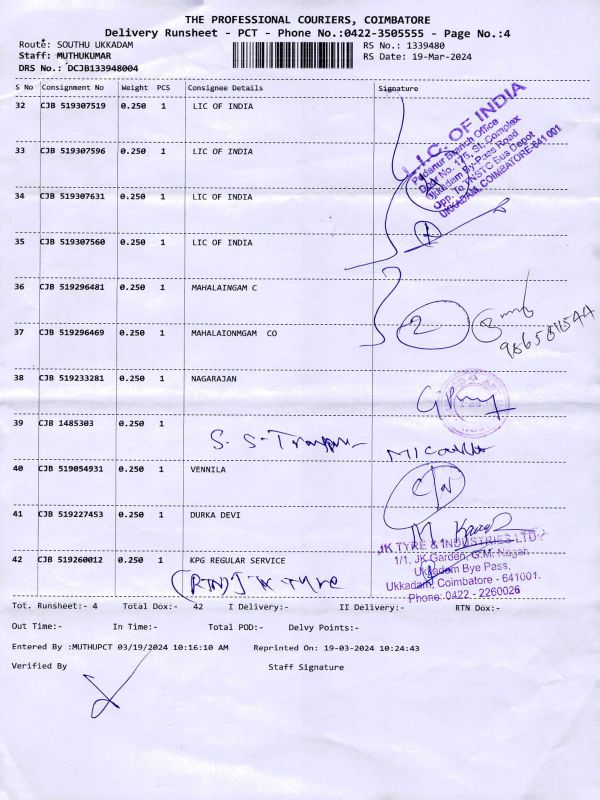 THE PROFESSIONAL COURIERS, COIMBATORE
Delivery Runsheet - PCT - Phone No.:0422-3505555 - Page No.:4
Route: SOUTHU UKKADAM
RS No.: 1339480
Staff: MUTHUKUMAR
RS Date: 19-Mar-2024
DRS No.: DCJB133948004
S No Consignment No Weight PCS Consignee Details Signature
32 CJB 519307519 0.250 1 LIC OF INDIA
33 CJB 519307596 0.250 1 LIC OF INDIA
34 CJB 519307631 0.250 1 LIC OF INDIA
35 CJB 519307560 0.250 1 LIC OF INDIA
L.I.C. OF INDIA
Podanur Branch Office
Door No. 175, St. Complex
Ukkadam By-Pass Road
Opp. To TNSTC Bus Depot
UKKADAM, COIMBATORE-641 001
1
36 CJB 519296481 0.250 1 MAHALAINGAM C
37 CJB 519296469 0.250 1 MAHALAIONMGAM CO
2
38 CJB 519233281 0.250 1 NAGARAJAN
39 CJB 1485303 0.250 1
S. S.
40 CJB 519054931 0.250 1 VENNILA
41 CJB 519227453 0.250 1 DURKA DEVI
42 CJB 519260012 0.250 1 KPG REGULAR SERVICE
(RTN) JK Tyre
JK TYRE & INDUSTRIES LTD
1/1, JK Garden, G.M. Nagar,
Ukkadam Bye Pass,
Ukkadam, Coimbatore - 641001.
Phone: 0422 - 2260026
Tot. Runsheet:- 4 Total Dox:- 42 I Delivery:- II Delivery:- RTN Dox:-
Out Time:- In Time:- Total POD:- Delvy Points:-
Entered By :MUTHUPCT 03/19/2024 10:16:10 AM Reprinted On: 19-03-2024 10:24:43
Verified By Staff Signature